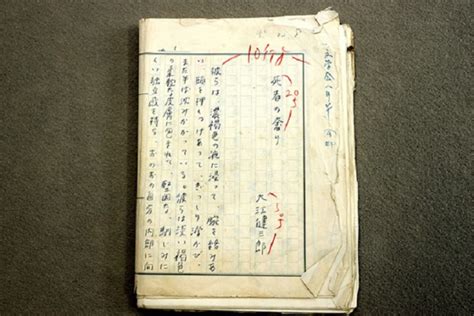 文学界八月号
死者の奢り
大江健三郎
彼らは、濃褐色の液に浸って、腕を絡みあ
い、頭を押しつけあって、ぎっしり浮かび、
また半ば沈みかかっている。彼らは淡い褐色
の柔軟な皮膚に包まれて、堅固な、馴じみに
くい独立感を持ち、おのおの自分の内部に向